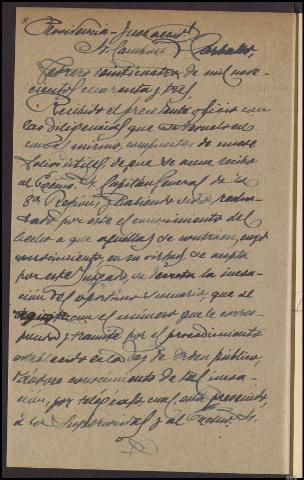 Providencia - Juez acctl.
Sr.
Febrero veinticuatro de mil nove-
cientos cuarenta y tres.
Recibido el precedente oficio con
las diligencias que
con el mismo, compuestas de nueve
folios útiles de que se acuse recibo
al Excmo. Sr. Capitán General de la
8ª Región, y habiendo sido recha-
zado por este el conocimiento del
hecho a que aquellas se contraen, cuyo
conocimiento en su virtud se acepta
por este Juzgado, se decreta la incoa-
ción del oportuno sumario, que se
con el número que le corres-
ponda y tramite por el procedimiento
establecido en la Ley de Orden público,
dándose conocimiento de tal incoa-
ción, por telégrafo, cual está prevenido,
a la Superioridad y al Excmo. Sr.